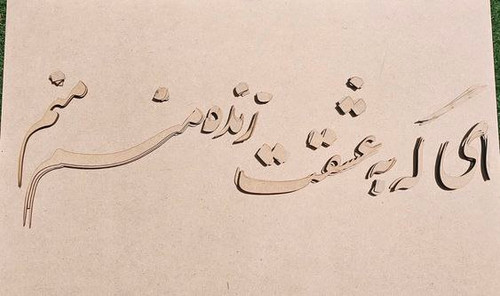 ای که به عشقت زنده منم منم